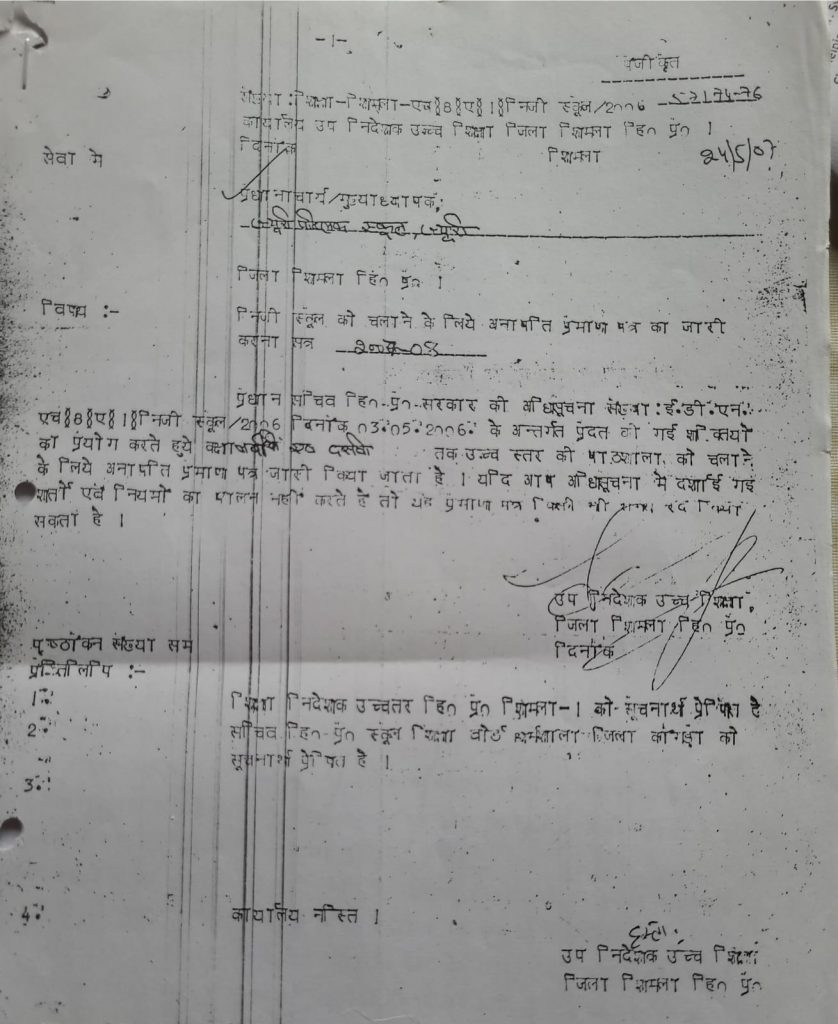 -1-
पंजीकृत
संख्या :शिक्षा-शिमला-एच§8§ए§1§निजी स्कूल/2006 -52174-76
कार्यालय उप निदेशक उच्च शिक्षा जिला शिमला हि० प्र० ।
दिनांक शिमला 24/5/07
सेवा मे
प्रधानाचार्य/मुख्याध्यापक,
पब्लिक स्कूल,
जिला शिमला हि० प्र० ।
विषय :-
निजी स्कूल को चलाने के लिये अनापति प्रमाण पत्र का जारी
करना सत्र 2007-08
प्रधान सचिव हि०-प्र०-सरकार की अधिसूचना संख्या :ई.डी.एन.
एच§8§ए§1§निजी स्कूल/2006 दिनांक 03.05.2006. के अन्तर्गत प्रदत की गई शक्तियों
का प्रयोग करते हुये कक्षा दसवी तक उच्च स्तर की पाठशाला को चलाने
के लिये अनापति प्रमाण पत्र जारी किया जाता है । यदि आप अधिसूचना मे दर्शाई गई
शर्तो एवं नियमो का पालन नही करते है तो यह प्रमाण पत्र किसी भी समय रद किया
सकता है ।
उप निदेशक उच्च शिक्षा,
जिला शिमला हि० प्र०
दिनांक
पृष्ठांकन संख्या सम
प्रतिलिपि :-
1. शिक्षा निदेशक उच्चतर हि० प्र० शिमला-1 को सूचनार्थ प्रेषित है
2. सचिव हि०-प्र० स्कूल शिक्षा बोर्ड धर्मशाला जिला कांगडा को
सूचनार्थ प्रेषित है ।
3.
4. कार्यालय नस्ति ।
हस्ता.
उप निदेशक उच्च शिक्षा
जिला शिमला हि० प्र०